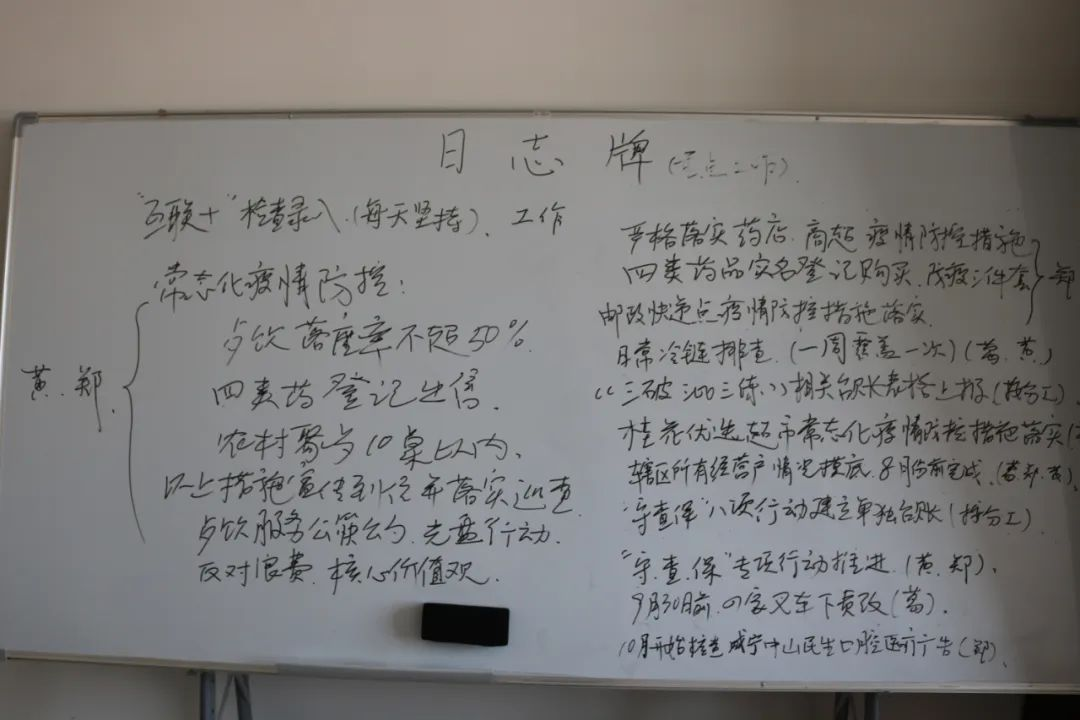 日志牌(重点工作)
"互联+"检查录入(每天坚持)、工作
常态化疫情防控:
黄.郑.
占饮落座率不超50%.
四类药登记上传.
农村聚占10桌以内、
以上措施宣传到位并落实巡查
占饮服务公筷公勺.光盘行动.
反对浪费.核心价值观.
严格落实药店.商超疫情防控措施
四类药品实名登记购买.防疫三件套
郑
邮政快递点疫情防控措施落实
日常冷链排查.(一周覆盖一次)(葛.黄.)
相关台账表格上报(按分工).
桂花优选超市常态化疫情防控措施落实(
辖区所有经营户情况摸底.8月份前完成.
"守查保"八项行动建立单独台账(按分工)
"守.查.保"专项行动推进.(黄.郑)、
9月30日前.(葛).
10月开始检查咸宁中山民生口腔医疗广告(郑)、